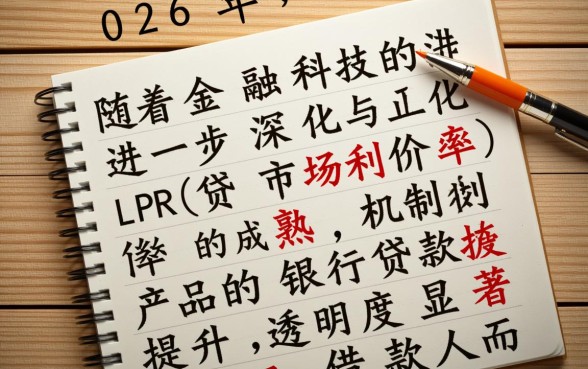 026年，
随着金融科技的进
进一步深化与正化
LPR(贷市场利价率)
的成熟，机制
产品的银行贷款
提升，透明度显著
借款人而